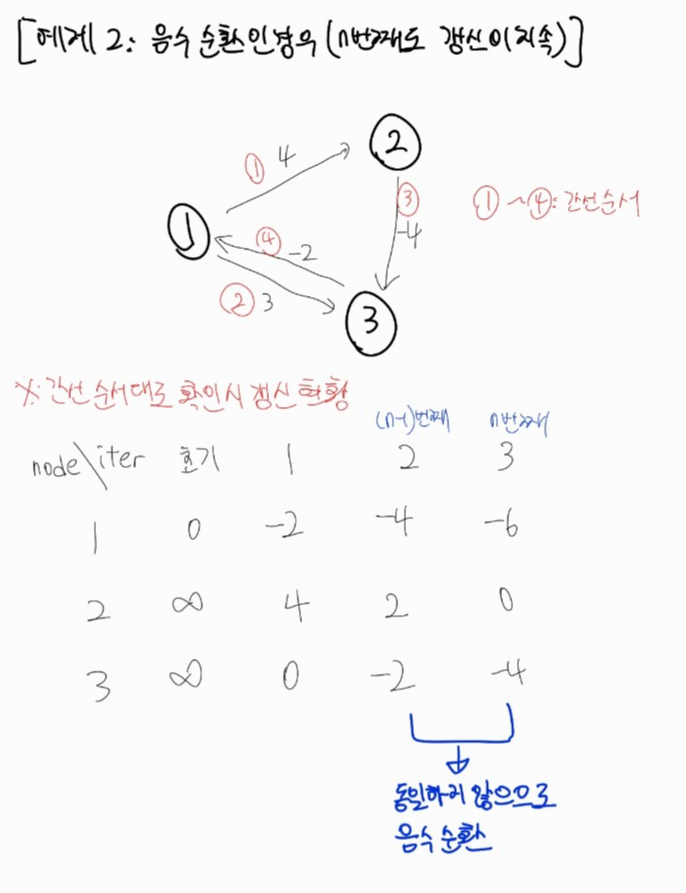 [예제 2: 음수 순환인 경우 (n번째도 갱신이 지속)]
① 4
2
③
-4
① ~ ④: 간선순서
1
④ -2
② 3
3
※: 간선 순서대로 확인시 갱신 현황
(n-1)번째 n번째
node\iter 초기 1 2 3
1 0 -2 -4 -6
2 ∞ 4 2 0
3 ∞ 0 -2 -4
동일하지 않으므로
음수 순환